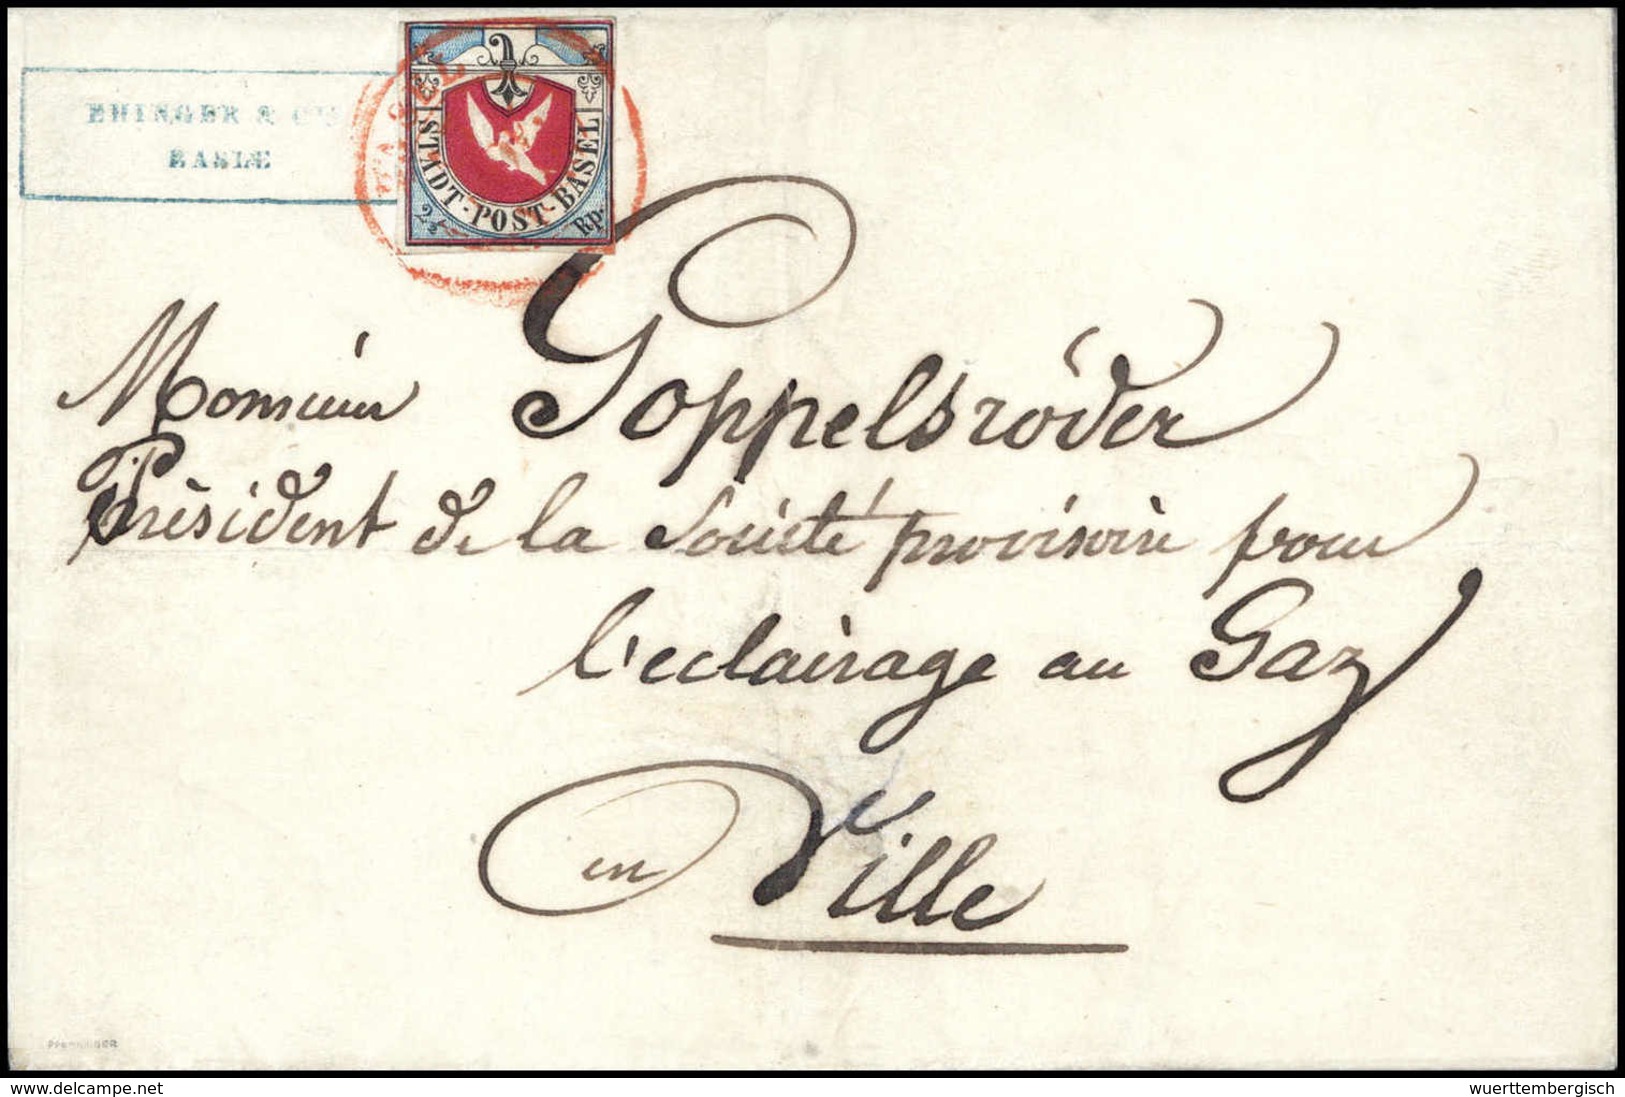 EHINGER & CIE
BASLE
BASEL
STADT-POST-BASEL
2½ Rp.
Monsieur Goppelsröder
Président de la Société provisoire pour
l'eclairage au Gaz
en Ville
PFENNINGER
www.delcampe.net
wuerttembergisch